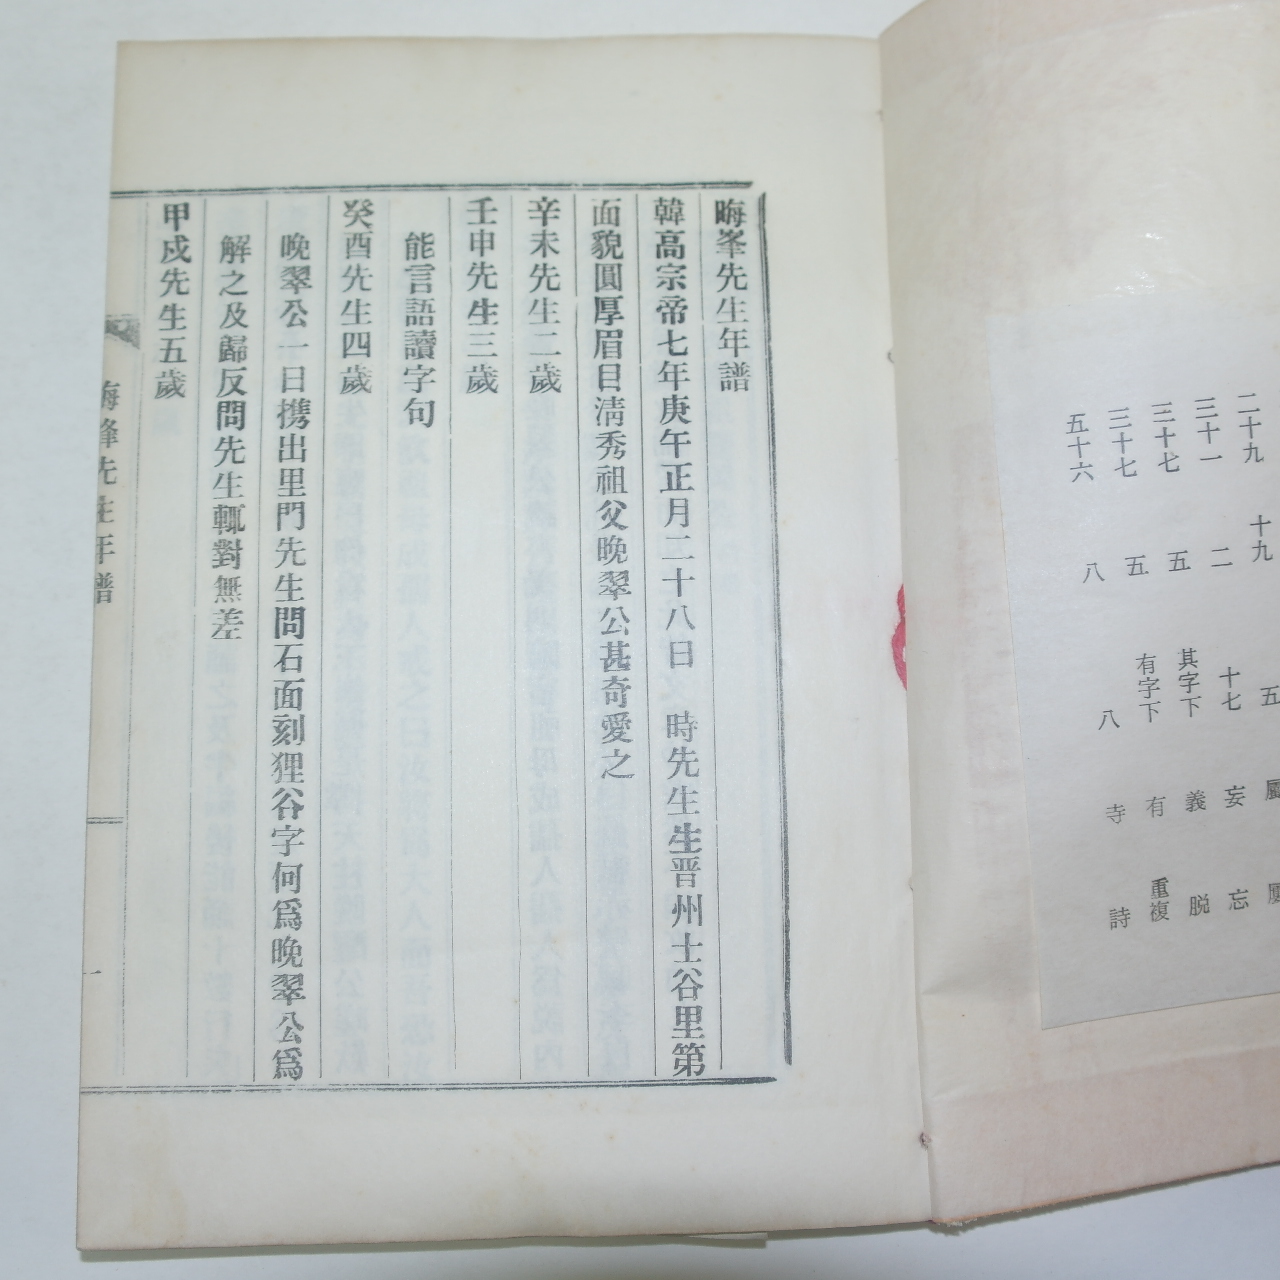 二十九 十九 五
三十一 二 十七 妄 忘
三十七 五 其字下 義 脱
三十七 五 有字下 有 重複
五十六 八 八 寺 詩
晦峯先生年譜
韓高宗帝七年庚午正月二十八日 時先生生晋州士谷里第
面貌圓厚眉目淸秀祖父晚翠公甚奇愛之
辛未先生二歲
壬申先生三歲
能言語讀字句
癸酉先生四歲
晚翠公一日携出里門先生問石面刻狸谷字何爲晚翠公爲
解之及歸反問先生輒對無差
甲戍先生五歲
晦峰先生年譜
一